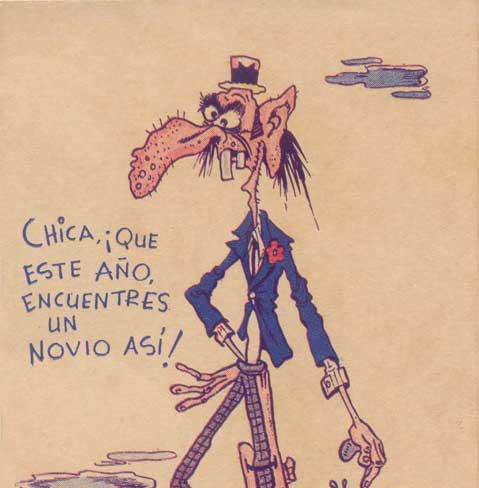 CHICA, ¡QUE
ESTE AÑO,
ENCUENTRES
UN
NOVIO ASÍ!